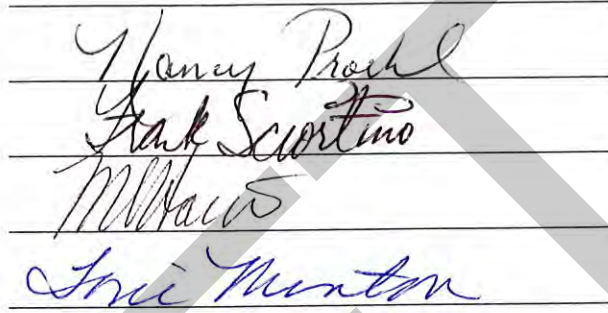 Nancy Prochl
Frank Sciortino
Lorie Minton